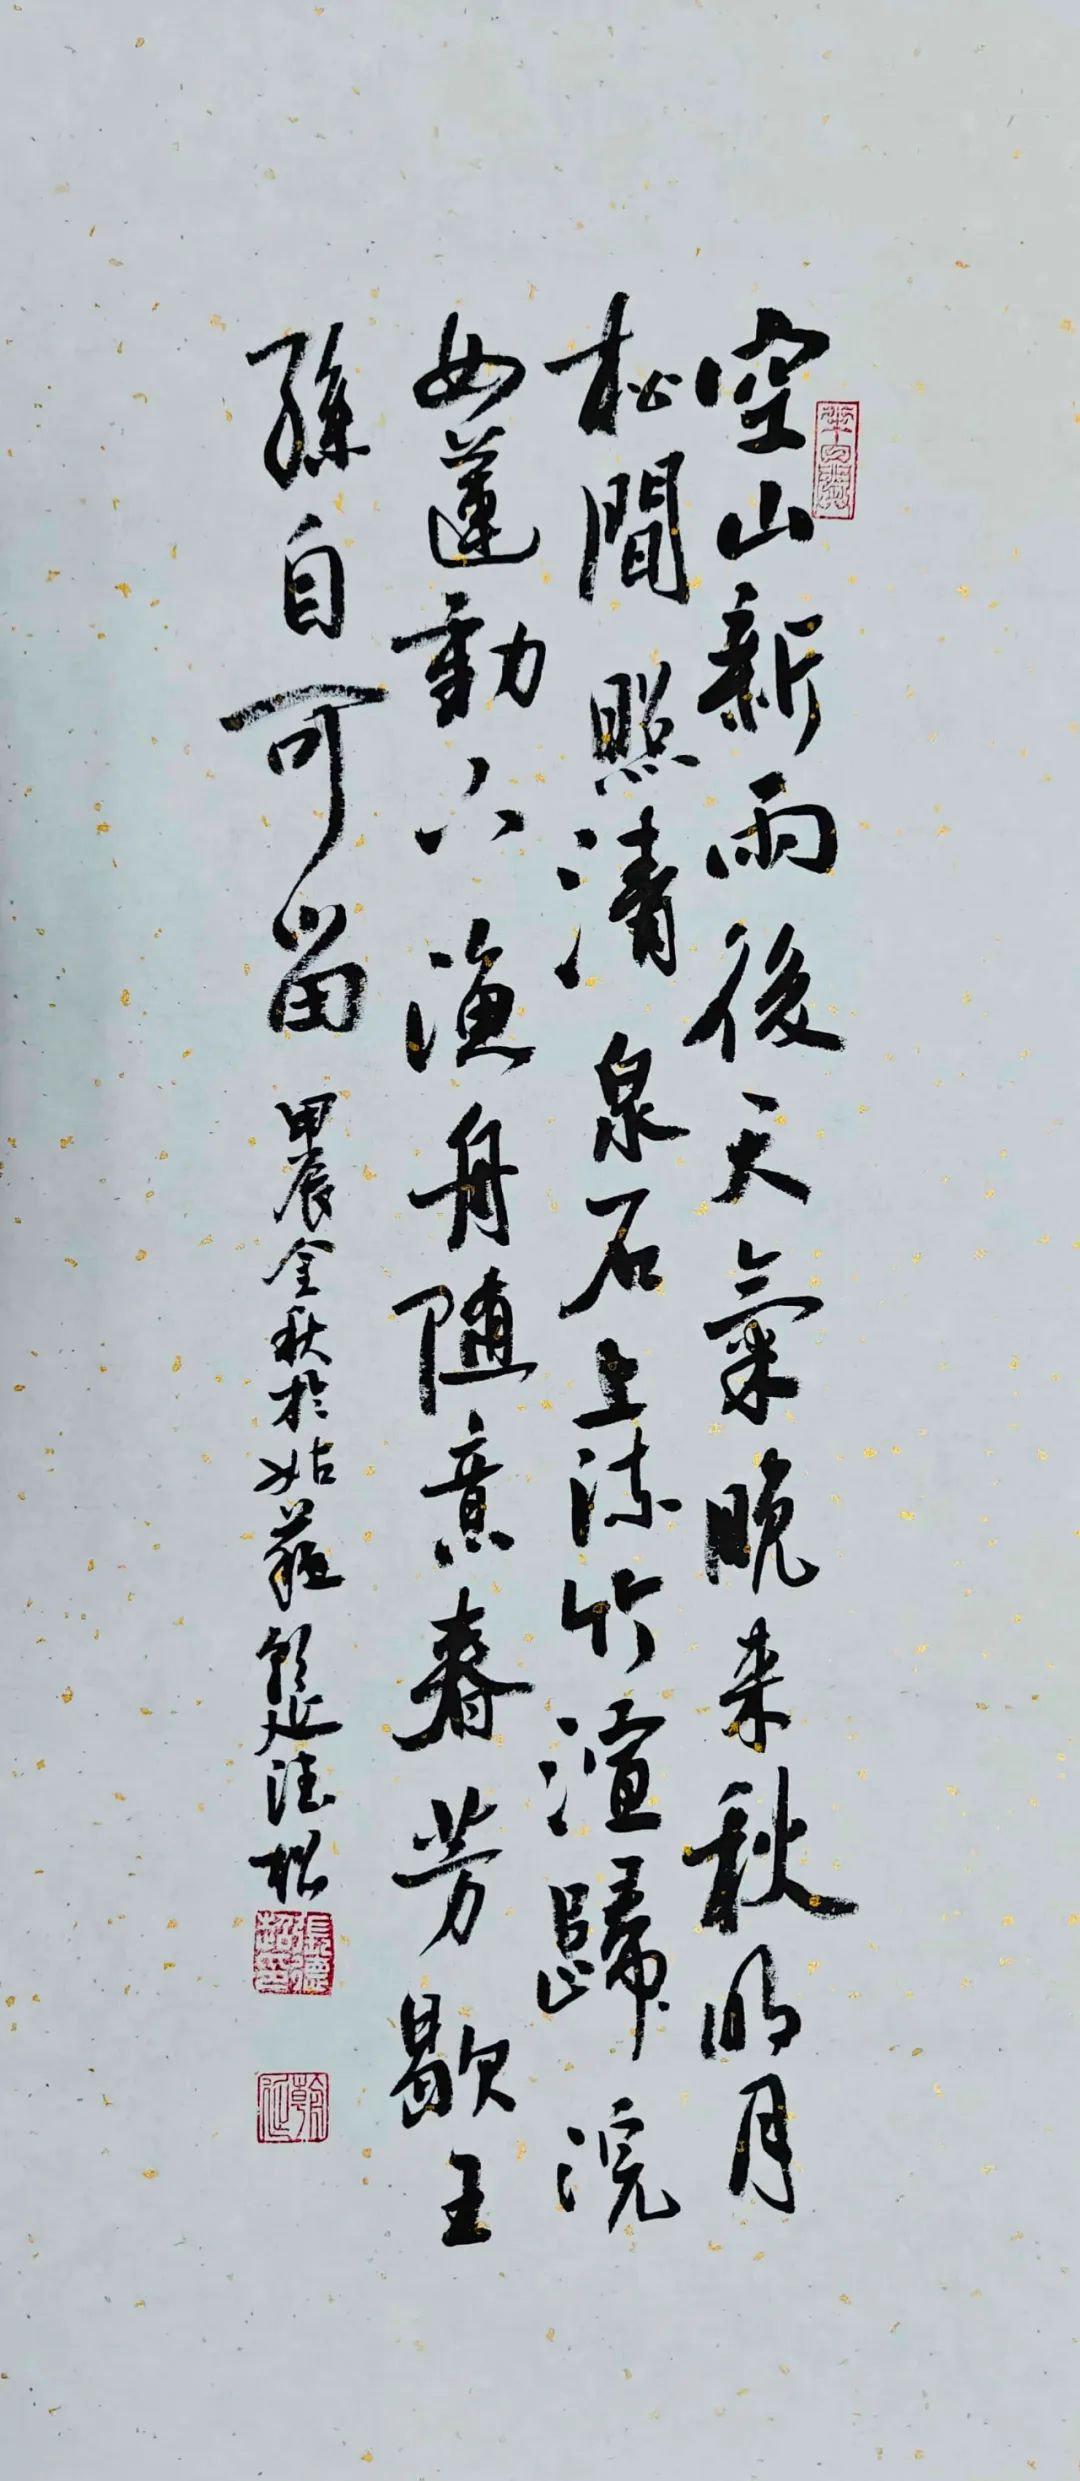 空山新雨後天氣晚来秋明月
松間照清泉石上流竹渲歸浣
女蓮動下漁舟隨意春芳歇王
孫自可留
甲辰金秋於姑蘇
張德
超印